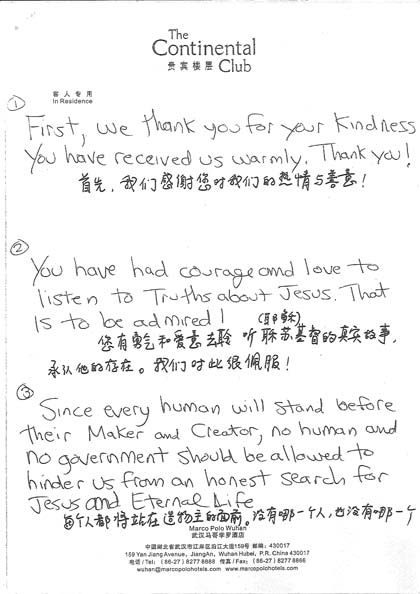 The
Continental
贵宾楼层 Club
客人专用
In Residence
① First, we thank you for your kindness
You have received us warmly. Thank you!
首先,我们感谢您对我们的热情与善意!
② You have had courage and love to
listen to Truths about Jesus. That
is to be admired! (耶稣)
您有勇气和爱意去聆听耶苏基督的真实故事,
承认他的存在。我们对此很佩服!
③ Since every human will stand before
their Maker and Creator, no human and
no government should be allowed to
hinder us from an honest search for
Jesus and Eternal Life
每个人都将站在造物主的面前。没有哪一个人,也没有哪一个
Marco Polo Wuhan
武汉马哥孛罗酒店
中国湖北省武汉市江岸区沿江大道159号 邮编:430017
159 Yan Jiang Avenue, Jiangan, Wuhan Hubei, P.R. China 430017
电话 / Tel: (86-27) 8277 8888 传真 / Fax: (86-27) 8277 8866
wuhan@marcopolohotels.com www.marcopolohotels.com